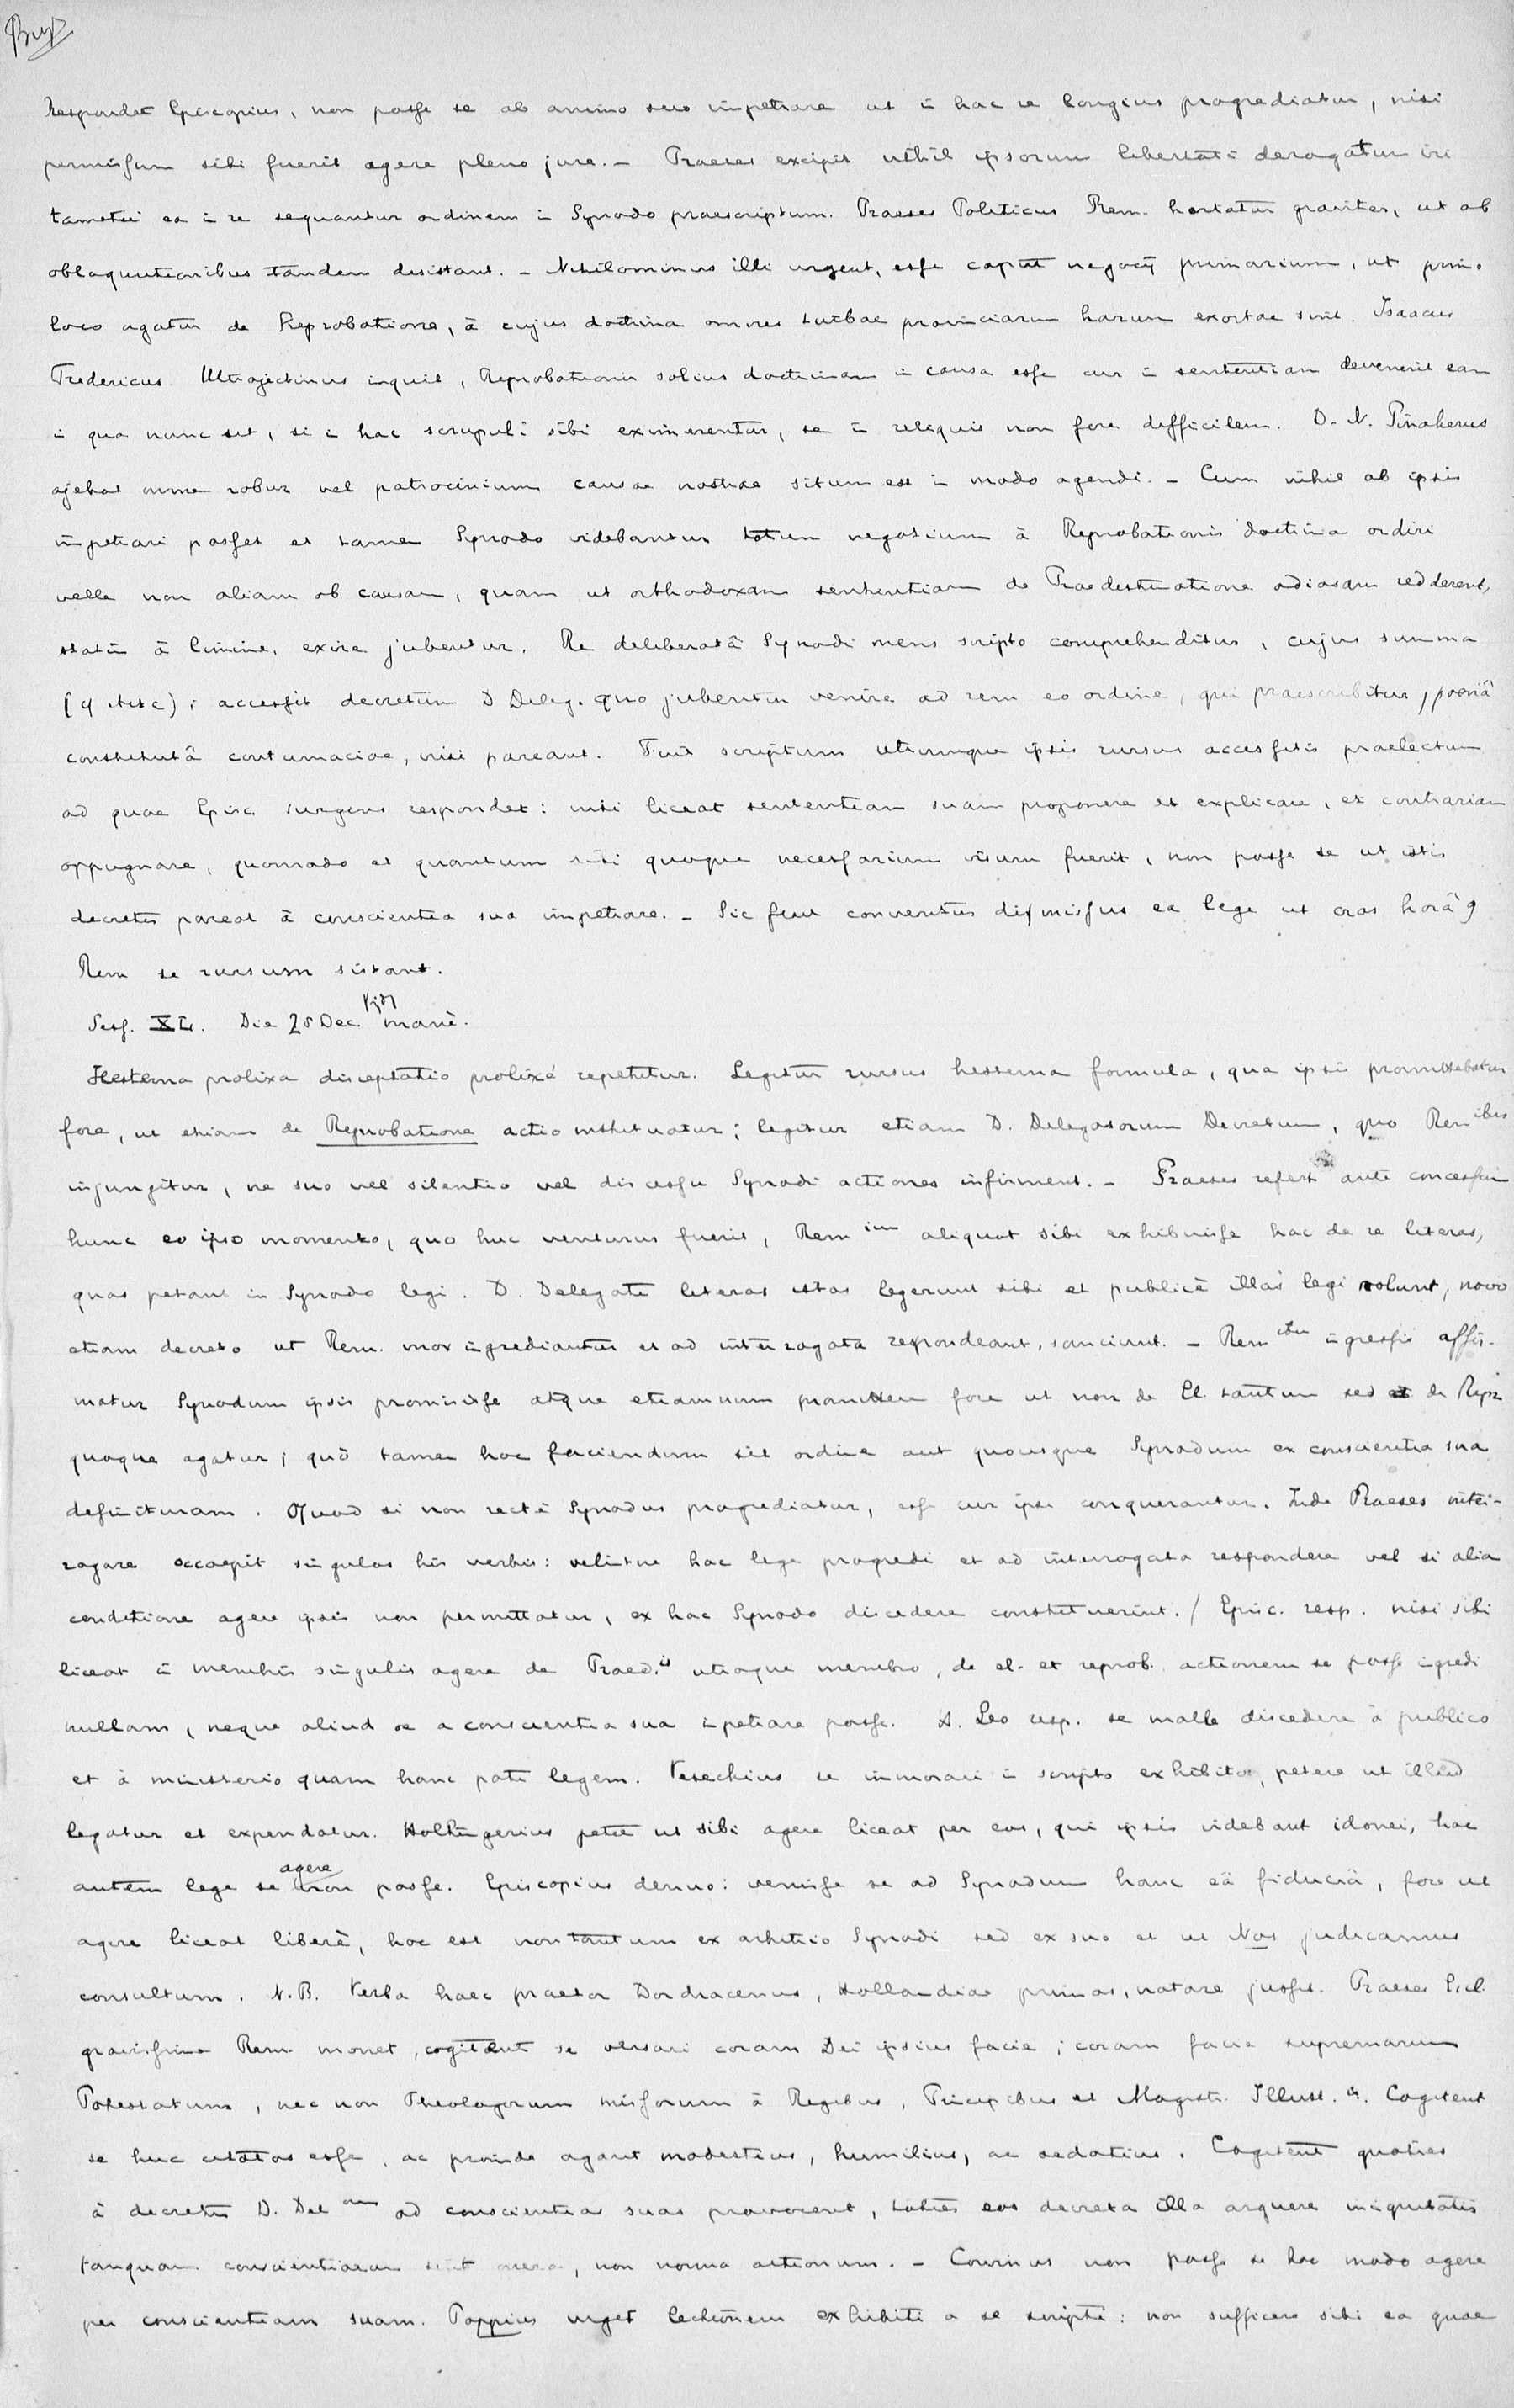 Respondet Episcopius, non posse se ab animo suo impetrare ut in hac re longius progrediatur, nisi
permissum sibi fuerit agere pleno jure. – Praeses excipit nihil ipsorum libertati derogatum iri
tametsi ea in re sequantur ordinem in Synodo praescriptum. Praeses Politicus Rem. hortatur graviter, ut ab
obloquutionibus tandem desistant. – Nihilominus illi urgent, esse caput negocij primarium, ut primo
loco agatur de Reprobatione, à cujus doctrina omnes turbae provinciarum harum exortae sint. Isaacus
Fredericus Ultrajectinus inquit, Reprobationis solius doctrinam in causa esse cur in sententiam devenerit eam
in qua nunc sit, si in hac scrupuli sibi eximerentur, se in reliquis non fore difficilem. D. N. Pinakerus
ajebat omne robur vel patrocinium causae nostrae situm est in modo agendi. – Cum nihil ab ipsis
impetrari posset et tamen Synodo videbantur totum negotium à Reprobationis doctrina ordiri
velle non aliam ob causam, quam ut orthodoxam sententiam de Praedestinatione odiosam redderent,
statim à limine, exire jubentur. Re deliberatâ Synodi mens scripto comprehenditur, cujus summa
; accessit decretum D Deleg. quo jubentur venire ad rem eo ordine, qui praescribitur, poenâ
constitutâ contumaciae, nisi pareant. Fuit scriptum utrumque ipsis rursus accessitis praelectum
ad quae Episc. surgens respondet: nisi liceat sententiam suam proponere et explicare, et contrariam
oppugnare, quomodo et quantum sibi quoque necessarium visum fuerit, non posse se ut istis
decretis pareat à conscientia sua impetrare. – Sic fuit conventus dismissus ea lege ut cras horâ 9
Rem se rursum sistant.
Sess. XL. Die 28 Dec. manè.
Hesterna prolixa disceptatio prolixé repetitur. Legitur rursus hesterna formula, qua ipsis promittebatur
fore, ut etiam de Reprobatione actio instituatur; legitur etiam D. Delegatorum Decretum, quo Rem ibus
injungitur, ne suo vel silentio vel discessu Synodi actiones infirment. – Praeses refert ante concessum
hunc eo ipso momento, quo huc venturus fuerit, Rem aliquot sibi exhibuisse hac de re literas,
quas petant in Synodo legi. D. Delegati literas istas legerunt sibi et publicè illas legi nolunt, novo
etiam decreto ut Rem. mox ingrediantur et ad interrogata respondeant, sanciunt. – Rem ibus ingressis affir-
matur Synodum ipsis promisisse atque etiamnum promittere fore ut non de El. tantum sed et de Repr
quoque agatur; quò tamen hoc faciendum sit ordine aut quousque Synodum ex conscientia sua
definituram. Quod si non rectè Synodus progrediatur, esse cur ipsi conquerantur. Inde Praeses inter-
rogare occaepit singulos his verbis: velintne hac lege progredi et ad interrogata respondere vel si alia
conditione agere ipsis non permittatur, ex hac Synodo discedere constituerint. / Episc. resp. nisi sibi
liceat in membris singulis agere de Praed. is utroque membro, de el. et reprob. actionem se posse ingredi
nullam, neque aliud se a conscientia sua impetrare posse. A. Leo resp. se malle discedere à publico
et à ministerio quam hanc pati legem. Vesechius se inmorari in scripto exhibito, petere ut illud
legatur et expendatur. Hollingerius petit ut sibi agere liceat per eos, qui ipsis videbant idonei, hac
autem lege se agere non posse. Episcopius denuo: venisse se ad Synodum hanc eâ fiduciâ, fore ut
agere liceat liberè, hoc est non tantum ex arbitrio Synodi sed ex suo et ut Nos judicamus
consultum. N.B. Verba haec praetor Dordracenus, Hollandiae primas, notare jussit. Praeses Eccl.
gravissime Rem. monet, cogitent se versari coram Dei ipsius facie; coram facie supremarum
Potestatum, nec non Theologorum missorum à Regibus, Principibus et Magistr. Illust. is. Cogitent
se huc citatos esse, ac proinde agant modestius, humilius, ac sedatius. Cogitent quoties
à decretis D. Del orum ad conscientias suas provocent, toties eos decreta illa arguere iniquitatis
tanquam conscientiarum sint onera, non norma actionum. – Corvinus non posse se hoc modo agere
per conscientiam suam. Poppius urget lectionem exhibiti a se scripti: non sufficere sibi ea quae